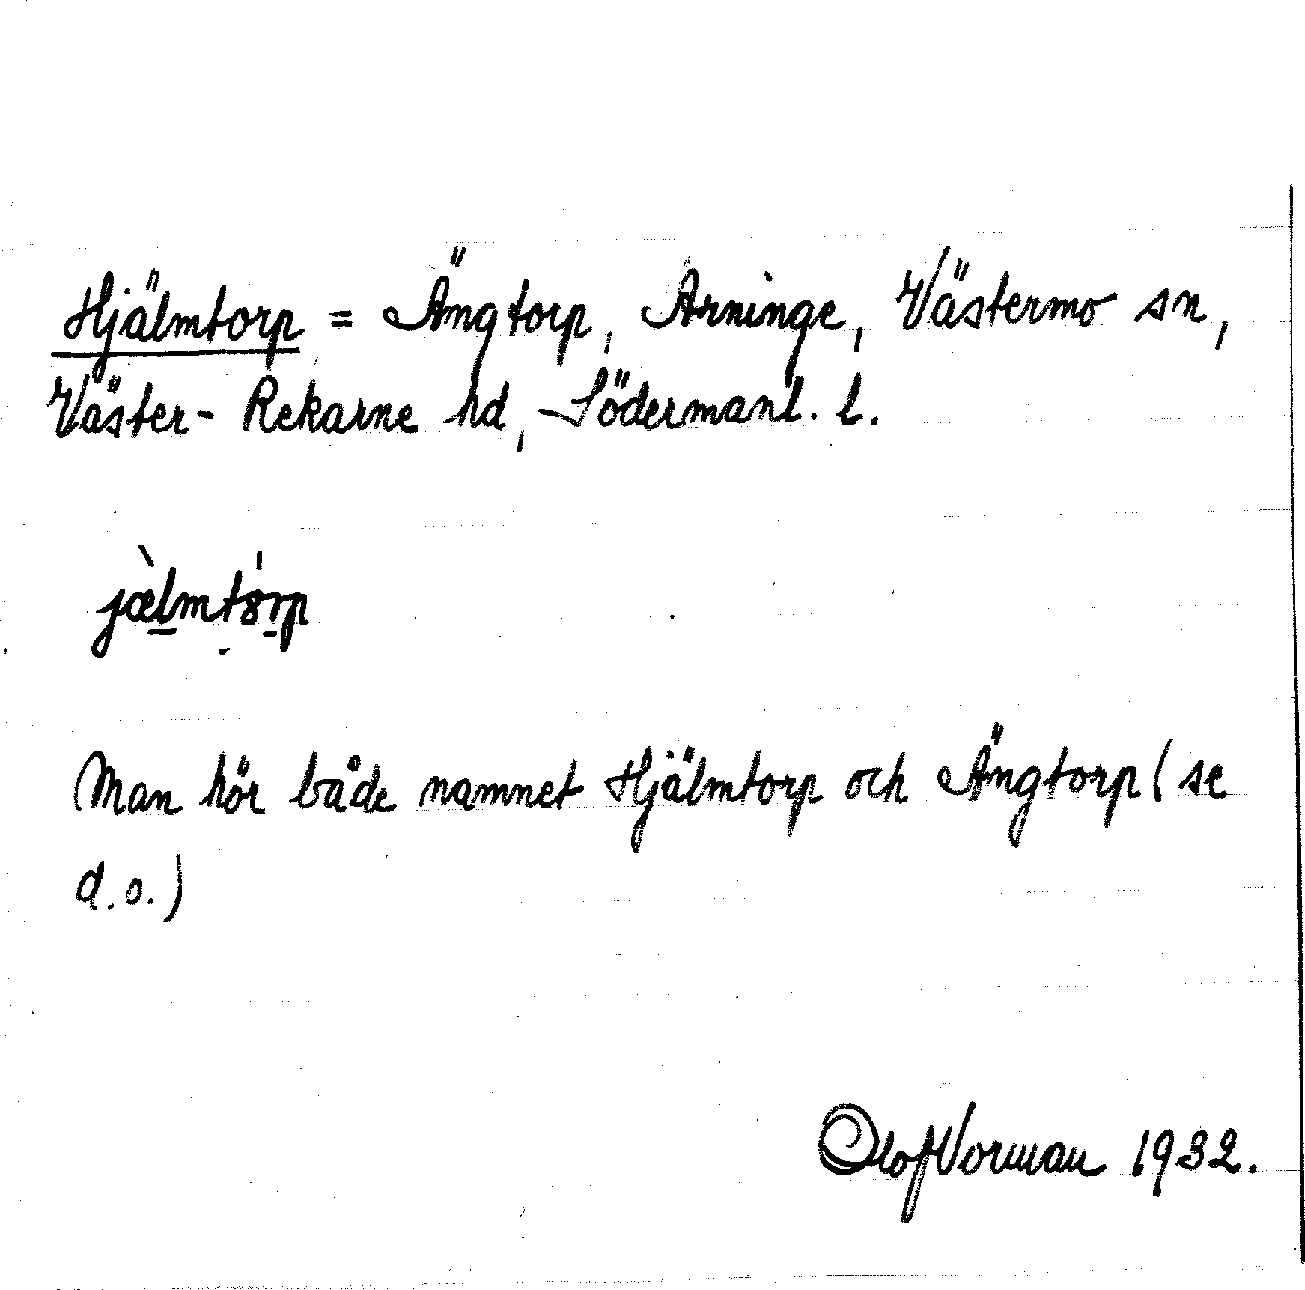 Hjälmtorp = Ängtorp, Arninge, Västermo sn,
Väster-Rekarne hd, Södermanl. l.
jœ̀lmtórp
Man hör både namnet Hjälmtorp och Ängtorp (se
d.o.)
Olof Vorman 1932.